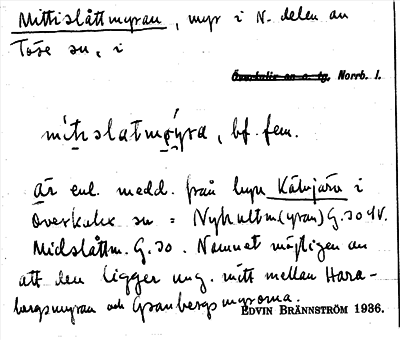 Mittislåttmyran, myr i N. delen av
Töre sn, i
Överkalix sn o. tg, Norrb. l.
mítislatmøyra, bf. fem.
är enl. medd. från byn Kälvjärv i
Överkalix sn = Nyhultm(yran) G.30 4V.
Midslåttm. G.30. Namnet möjligen av
att den ligger ung. mitt mellan Hara-
bergsmyran och Granbergsmyrorna.
EDVIN BRÄNNSTRÖM 1936.